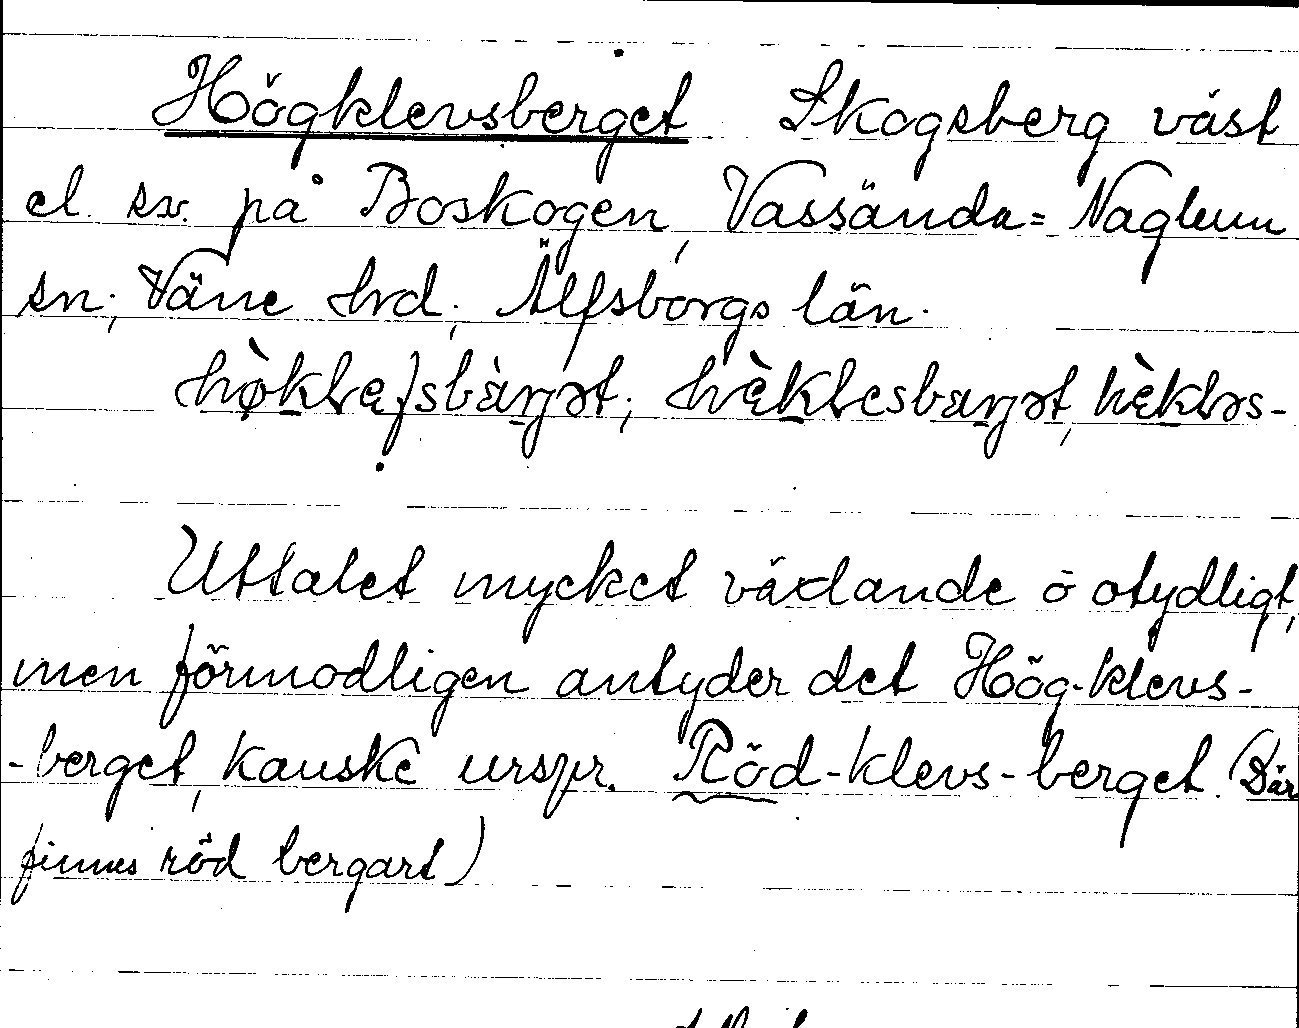 Högklevsberget Skogsberg väst
el. sv. på Boskogen, Vassända=Naglum
sn; Väne hrd; Älfsborgs län.
Uttalet mycket växlande o otydligt,
men förmodligen antyder det Hög-klevs-
-berget, kanske urspr. Röd-klevs-berget. (Där
finnes röd bergart)